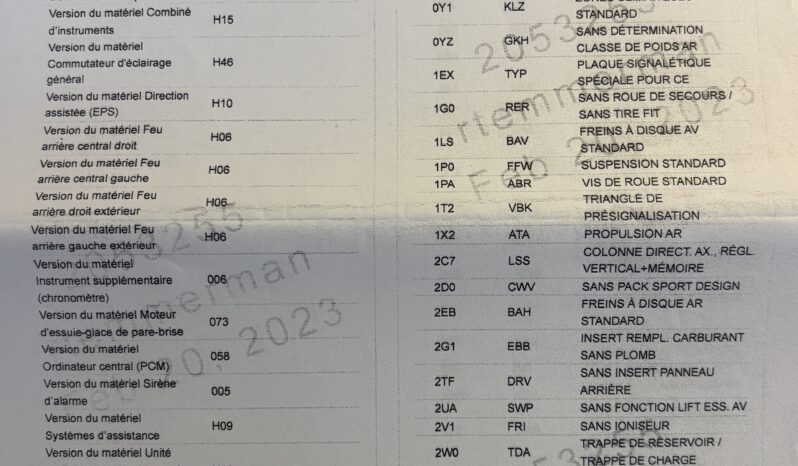 Version du matériel Combiné
d'instruments
H15
Version du matériel
Commutateur d'éclairage
général
H46
Version du matériel Direction
assistée (EPS)
H10
Version du matériel Feu
arrière central droit
H06
Version du matériel Feu
arrière central gauche
H06
Version du matériel Feu
arrière droit extérieur
H06
Version du matériel Feu
arrière gauche extérieur
H06
Version du matériel
Instrument supplémentaire
(chronomètre)
006
Version du matériel Moteur
d'essuie-glace de pare-brise
073
Version du matériel
Ordinateur central (PCM)
058
Version du matériel Sirène
d'alarme
005
Version du matériel
Systèmes d'assistance
H09
Version du matériel Unité
0Y1 KLZ
STANDARD
0YZ GKH SANS DÉTERMINATION
CLASSE DE POIDS AR
1EX TYP PLAQUE SIGNALÉTIQUE
SPÉCIALE POUR CE
1G0 RER SANS ROUE DE SECOURS /
SANS TIRE FIT
1LS BAV FREINS À DISQUE AV
STANDARD
1P0 FFW SUSPENSION STANDARD
1PA ABR VIS DE ROUE STANDARD
1T2 VBK TRIANGLE DE
PRÉSIGNALISATION
1X2 ATA PROPULSION AR
2C7 LSS COLONNE DIRECT. AX., RÉGL.
VERTICAL+MÉMOIRE
2D0 CWV SANS PACK SPORT DESIGN
2EB BAH FREINS À DISQUE AR
STANDARD
2G1 EBB INSERT REMPL. CARBURANT
SANS PLOMB
2TF DRV SANS INSERT PANNEAU
ARRIÈRE
2UA SWP SANS FONCTION LIFT ESS. AV
2V1 FRI SANS IONISEUR
2W0 TDA TRAPPE DE RÉSERVOIR /
TRAPPE DE CHARGE
2053255
rtemmerman
Feb 20, 2023
2053255
mmerman
Feb 20, 2023